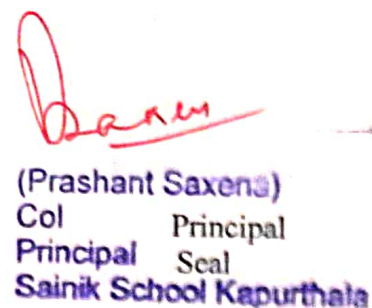 Saxen
(Prashant Saxena)
Col Principal
Principal Seal
Sainik School Kapurthala